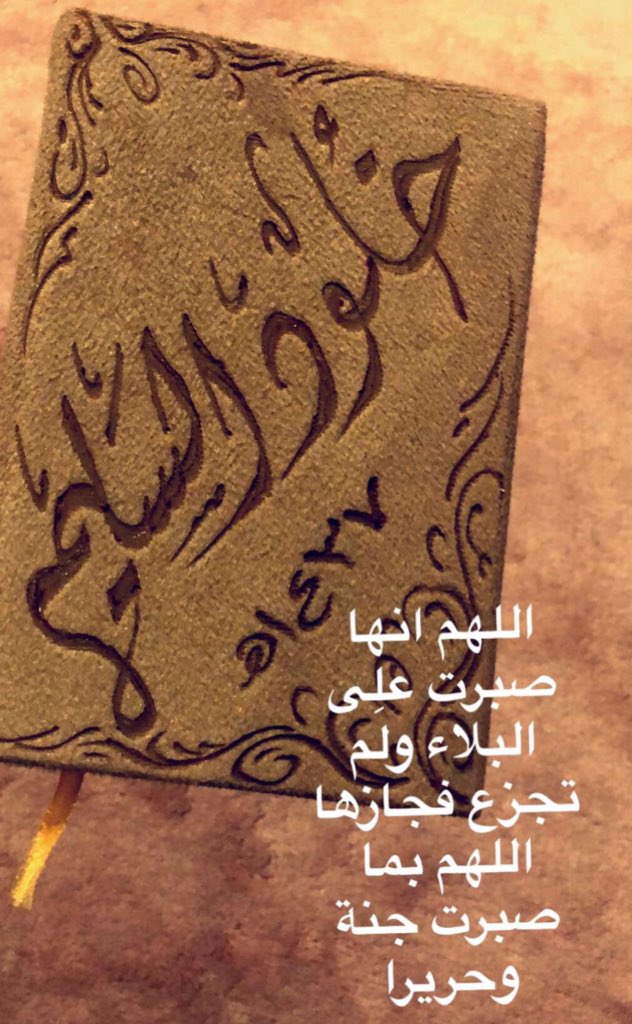 خلود السليم
١٤٣٧ه
اللهم انها
صبرت على
البلاء ولم
تجزع فجازها
اللهم بما
صبرت جنة
وحريرا